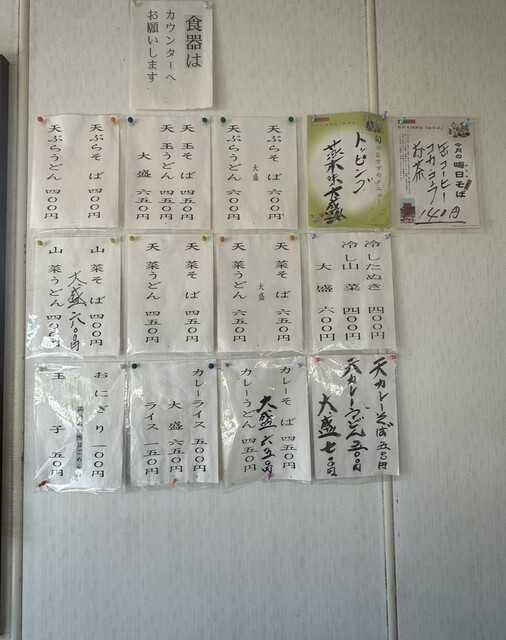 食器は
カウンターへ
お願いします
今月の晦日そば
缶コーヒー
コカコーラ
お茶
140円
旬のおすすめメニュー
トッピング
薬味大盛
天ぷらそば
大盛 六五〇円
天ぷらうどん
天玉そば 五五〇円
天玉うどん 五五〇円
大盛 六五〇円
天ぷらそば 四〇〇円
天ぷらうどん 四〇〇円
冷したぬき 四〇〇円
冷し山菜 四〇〇円
大盛 六〇〇円
天菜そば
大盛 六五〇円
天菜うどん
天菜そば 四五〇円
天菜うどん 四五〇円
山菜そば 四〇〇円
大盛 六〇〇円
山菜うどん 四〇〇円
天カレーそば 五五〇円
天カレーうどん 五五〇円
大盛 七〇〇円
カレーそば 四五〇円
大盛 六五〇円
カレーうどん 四五〇円
カレーライス 五〇〇円
大盛 六五〇円
ライス 一五〇円
おにぎり 一〇〇円
玉子 五〇円